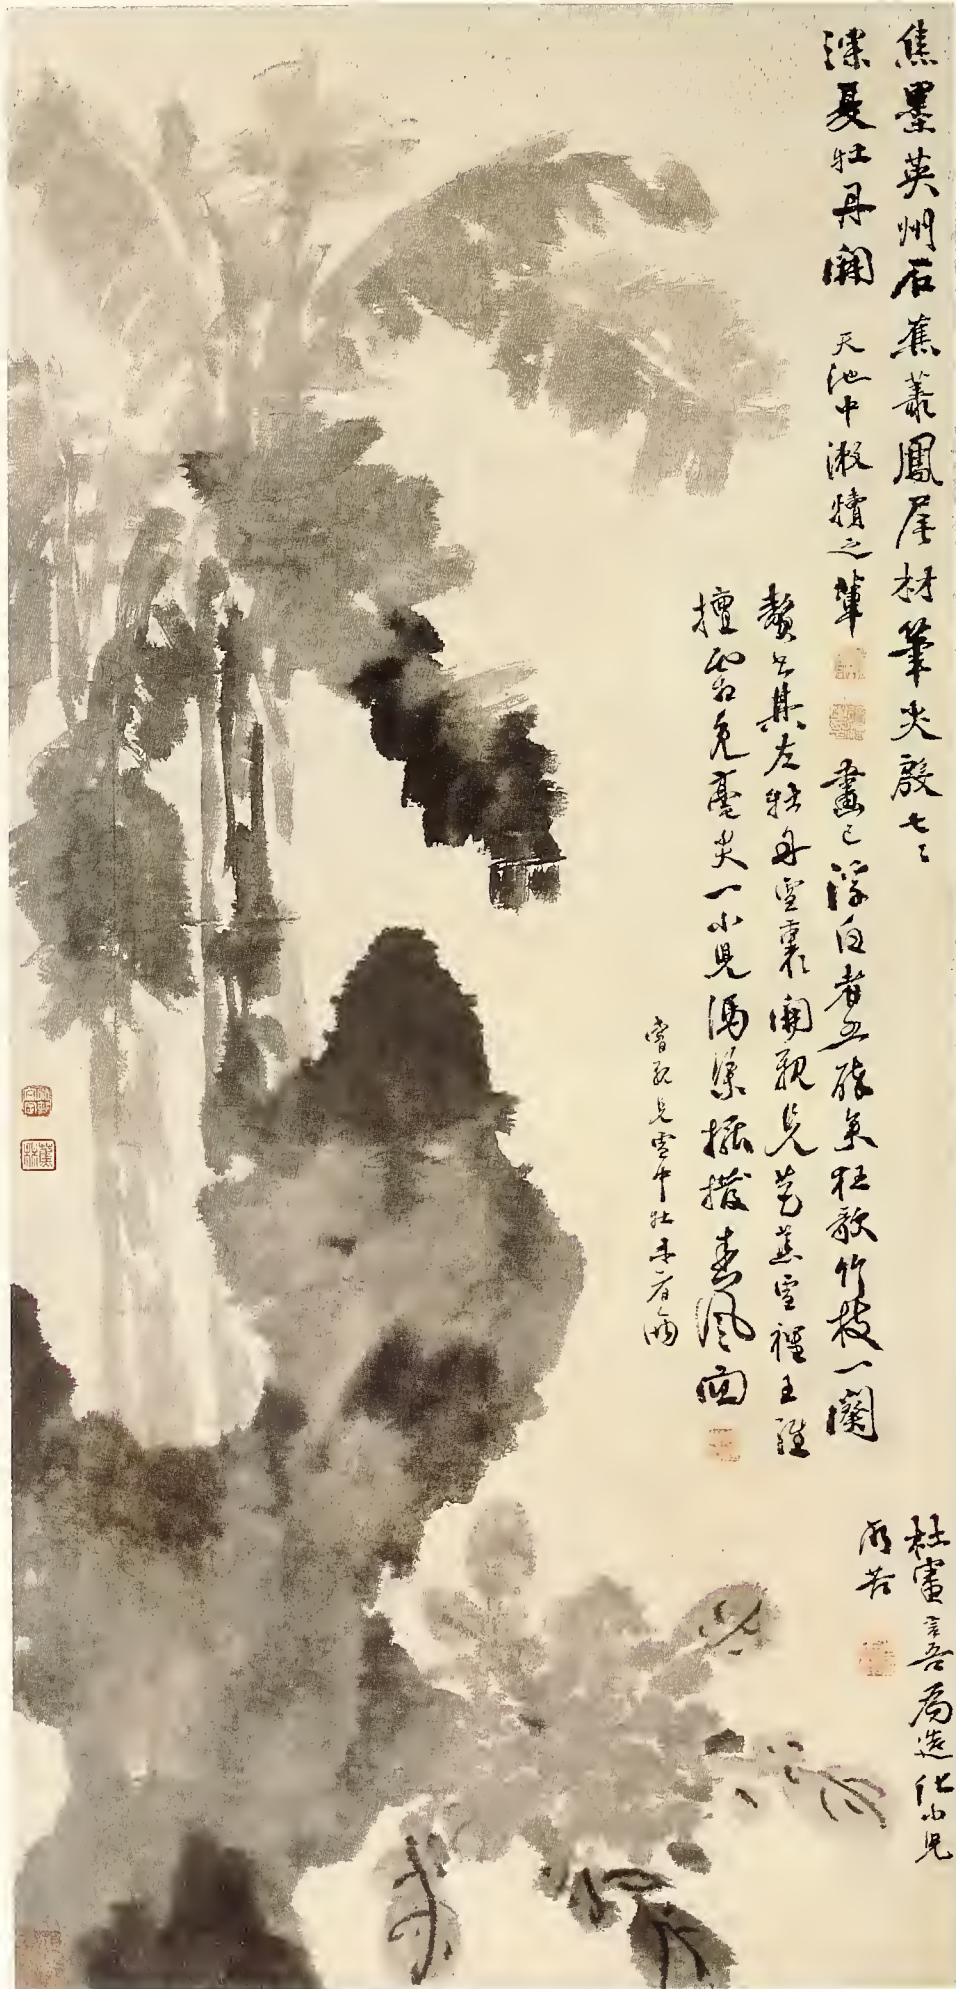 焦墨英州石蕉叢鳳尾材筆尖殷七〻
深夏牡丹開 天池中漱犢之輩
畫已浮白者五醉矣狂歌竹枝一闌
贅書其左牡丹雪裏開親見芭蕉雪裡王維
擅霜兔毫尖一小兒馮渠摇撥春風面
嘗親見雪中牡丹者兩
杜審言吾為造化小兒
所苦
蕉林